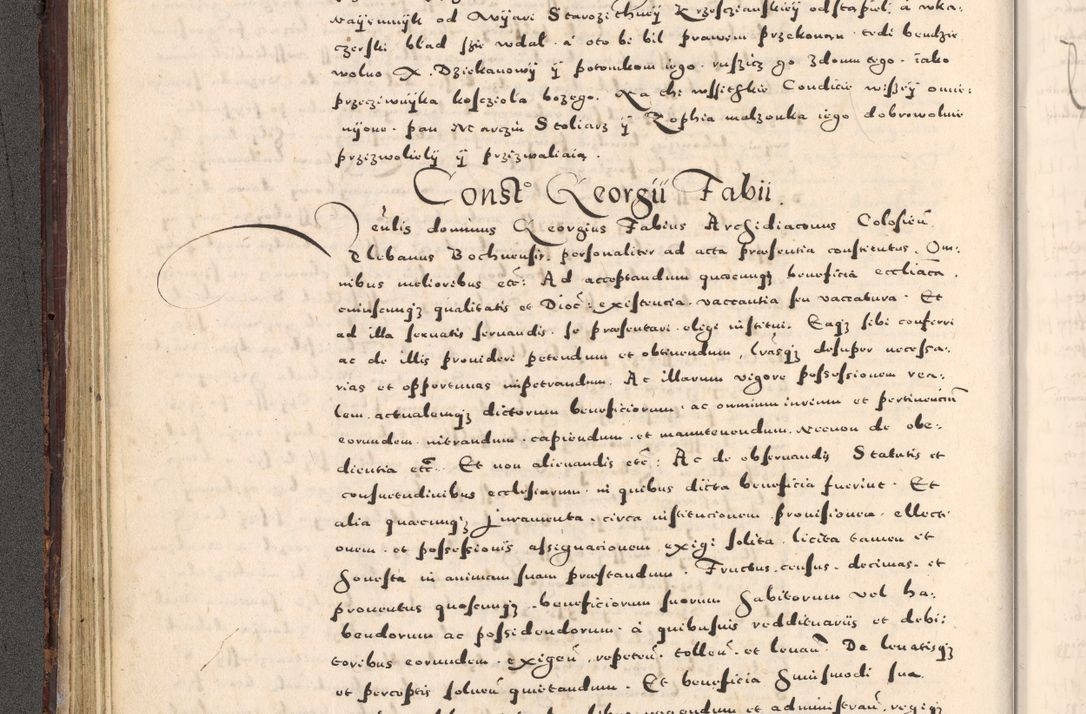 wayiemnyk od Wyiari Starozithney Krzescianskiey odstapiel, á wka:
czerski blad szie wdal · á oto bi bil prawem przekonan · tedi bendzie
wolno X. Dziekanowy y potomkom iego · ruszicz go z domu tego · iako
przecziwnyka kosczioła bozego. Na thi wssitzkie Condicie wissey omie:
nyone · pan Marczin Stoliarz y Zophia malzonka iego dobrowolnie
przizwoliely y przizwaliaią.
Const° Georgii Fabii.
Venlis dominus Georgius Fabius Archidiaconus Colosien̄
Plebanus Bochnensis, personaliter ad acta præsentia constitutus. Om:
nibus melioribus etc: Ad acceptandum quæcunqz beneficia eccliāca.
cuiuscunqz qualitatis et Dioc: existencia vaccantia seu vaccatura. Et
ad illa seruatis seruandis. se præsentari eligi institui. Eaqz sibi conferri
ac de illis prouideri petendum et obtinendum, lrāsqz desuper necessa:
rias et opportunas impetrandum. Ac illarum vigore possessionem rea:
lem actualemqz dictorum beneficiorum ac omnium iurium et pertinenciū
eorundem intrandum capiendum et manutenendum. Necnon de obe:
dientia etc. Et non alienandis etc: Ac de obseruandis Statutis et
consuetudinibus ecclesiarum in quibus dicta beneficia fuerint. Et
alia quæcunqz Juramenta circa institucionem prouisionem ellecti
onem et possessionis assignacionem exigi solita licita tamen et
honesta in animam suam præstandum Fructus census decimas et
prouentus quoscunqz beneficiorum suorum habitorum vel ha:
bendorum ac possidendorum à quibusuis redditeariis et debi:
toribus eorundem exigen̄ repeten̄ tollen̄ et leuan̄. De leuatisqz
et perceptis soluen̄ quietandum. Et beneficia huiusmodi sua
regendum et administran̄, regiqz